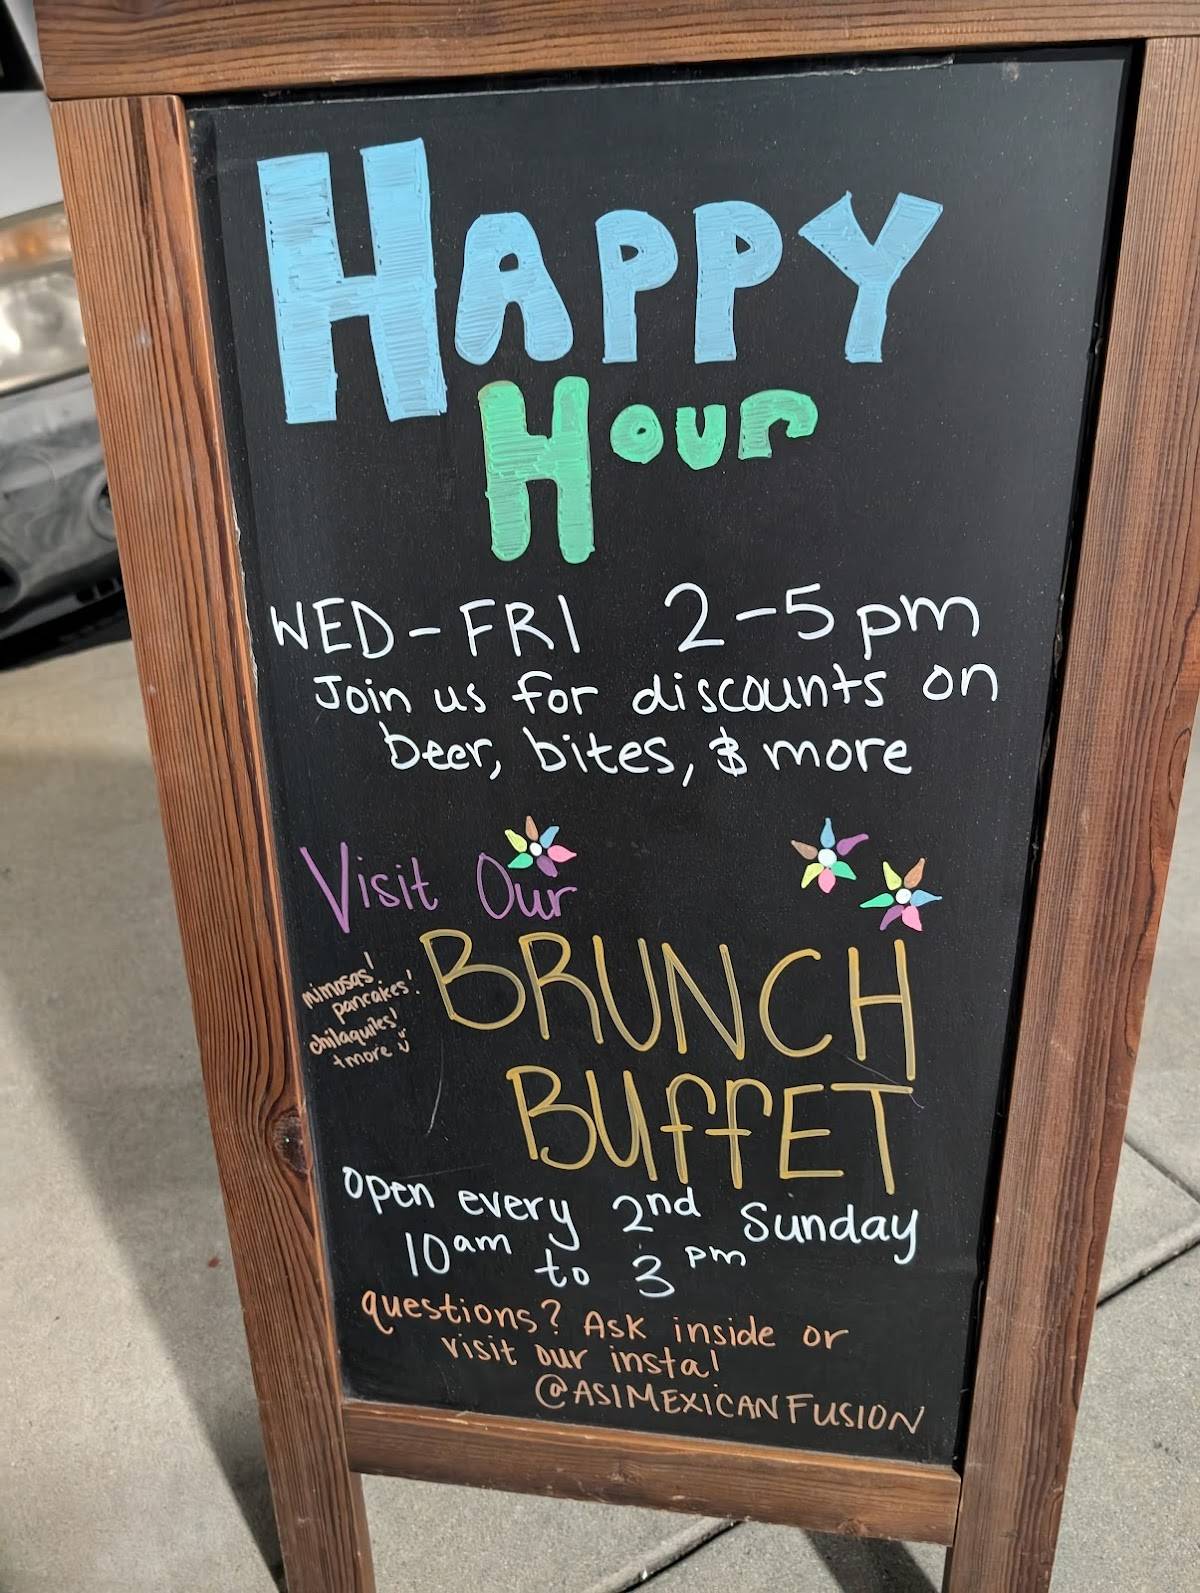 HAPPY
HOUR
WED-FRI 2-5pm
Join us for discounts on
beer, bites, & more
Visit Our
BRUNCH
BUffET
mimosas!
pancakes!
chilaquiles!
+more
open every 2nd Sunday
10am to 3pm
questions? Ask inside or
visit our insta!
@ASIMEXICANFUSION